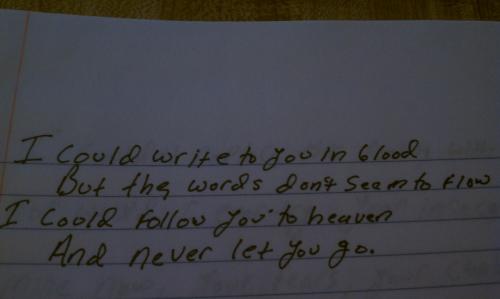 I could write to you in blood
But the words don't seem to flow
I could follow you to heaven
And never let you go.